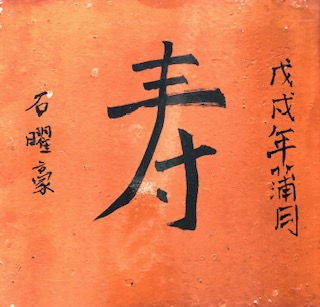 戊戌年蒲月
寿
石曜豪